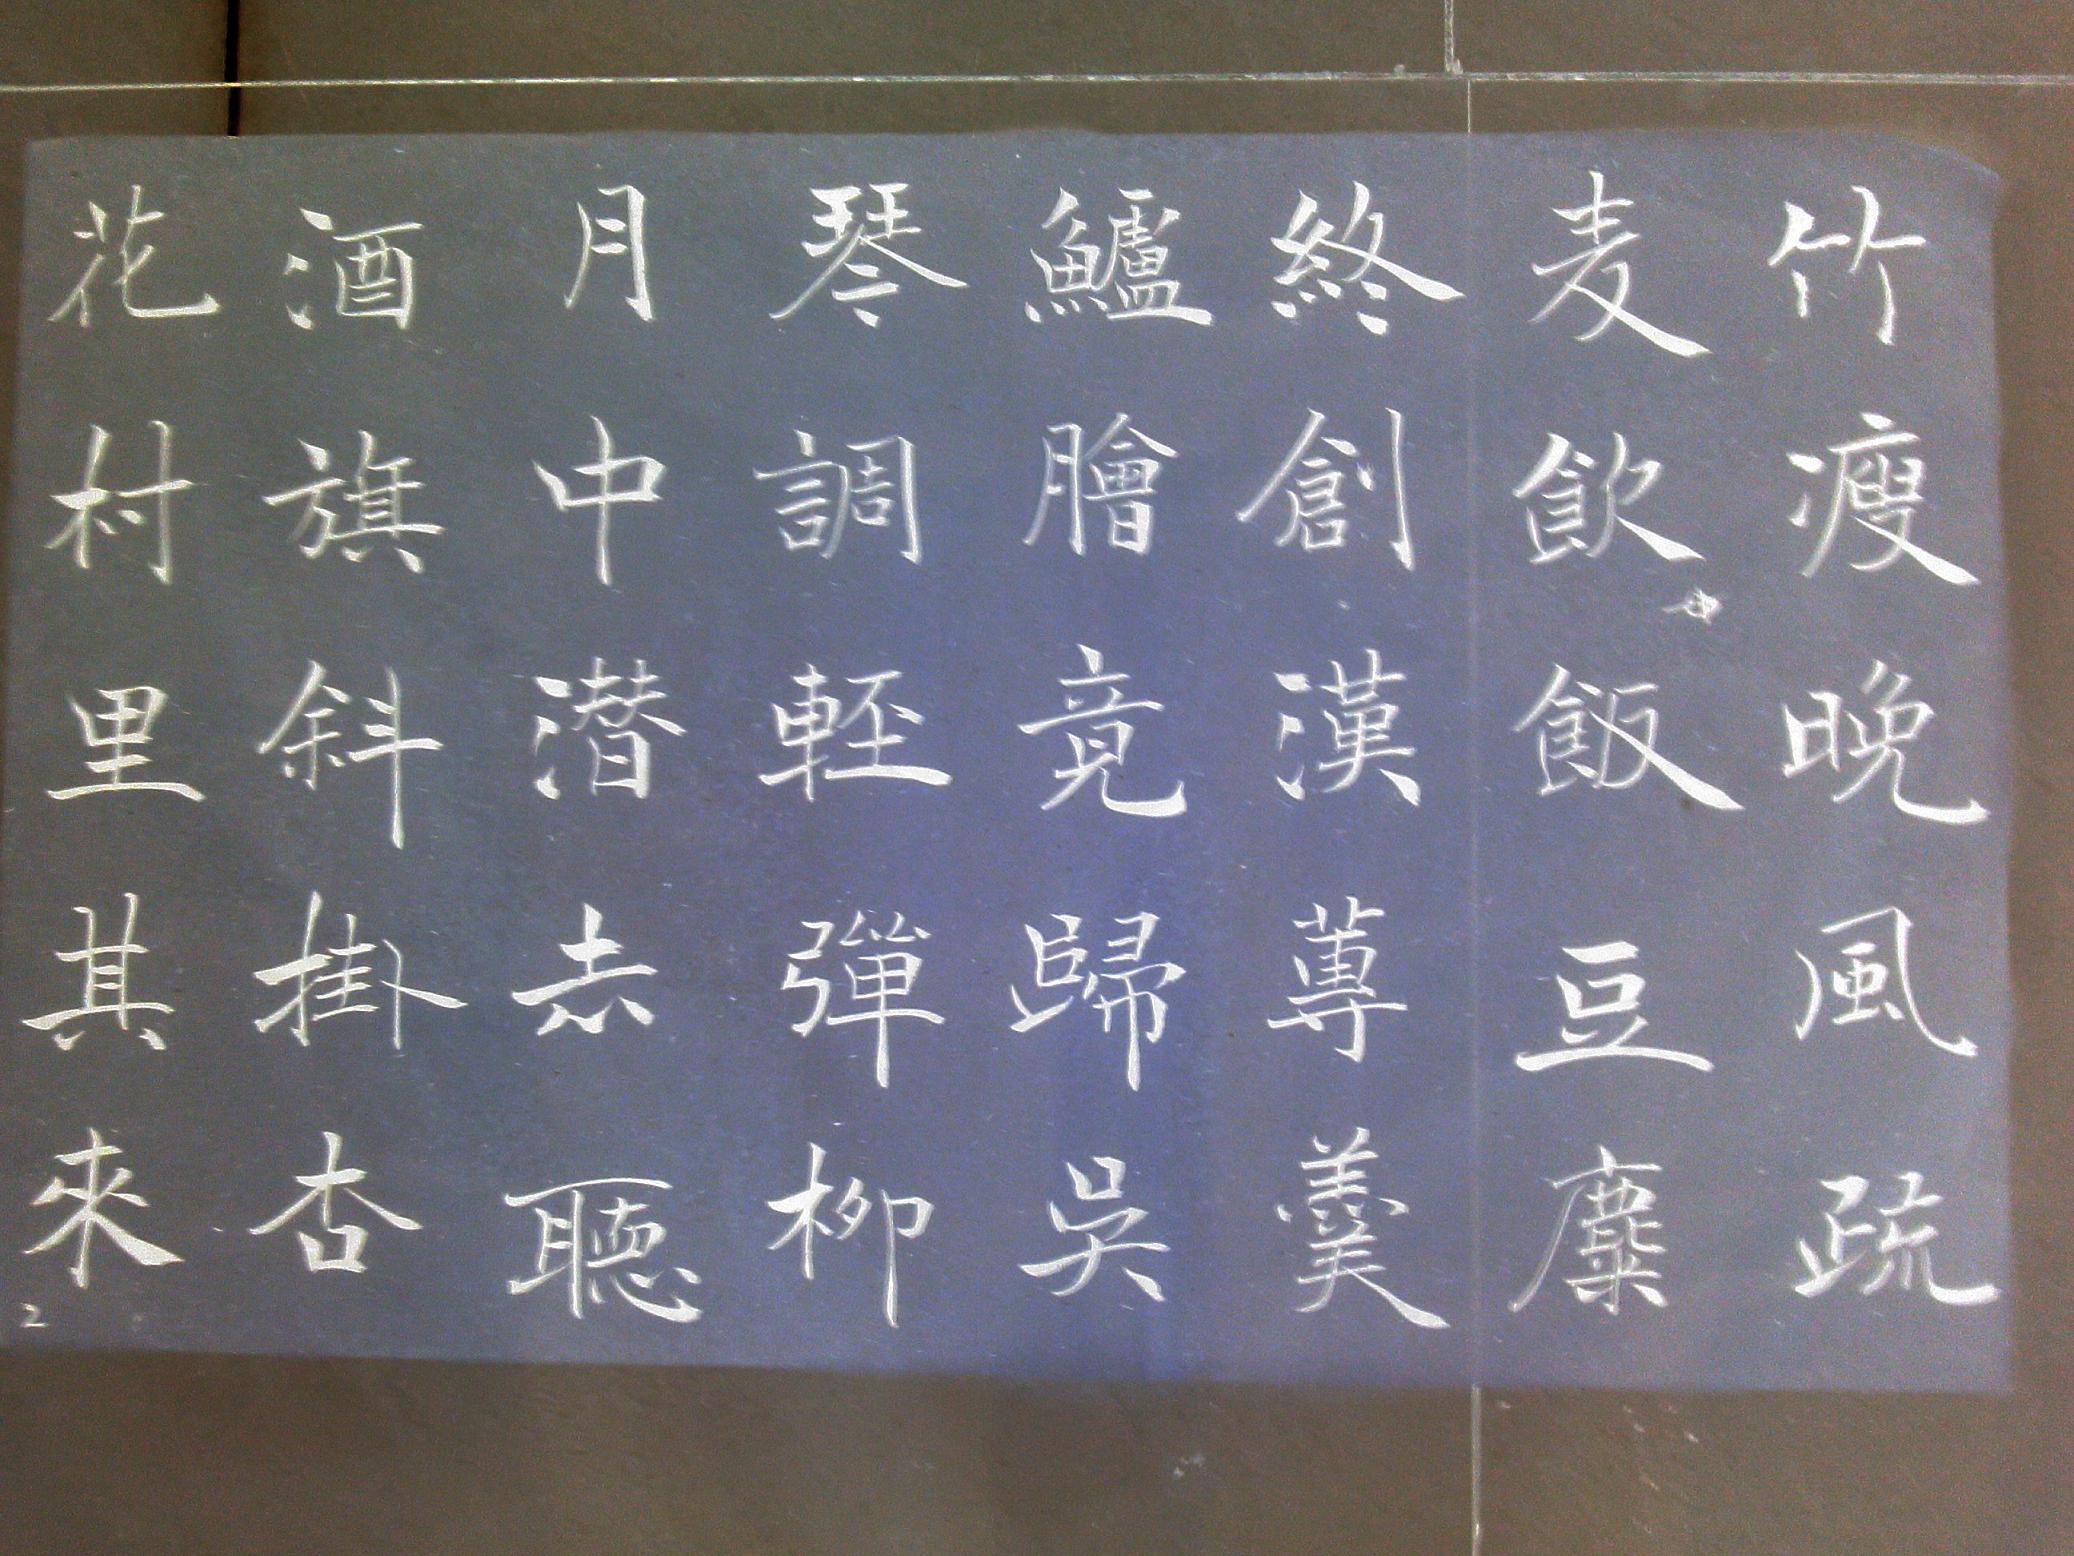 竹瘦晚風疏
麦飲飯豆糜
終創漢蓴羹
鱸膾竟歸吳
琴調輕彈柳
月中潛去聽
酒旗斜掛杏
花村里共來
2